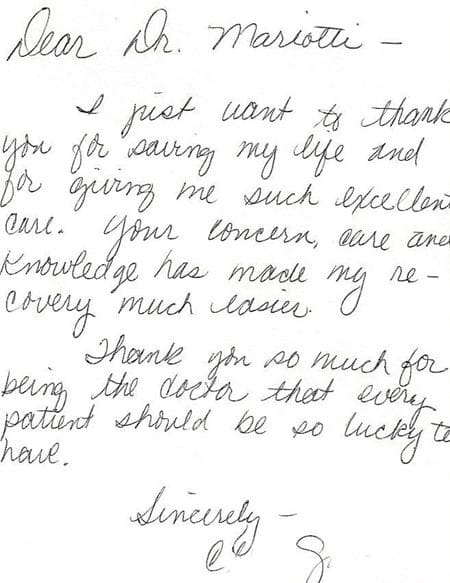 Dear Dr. Mariotti —
I just want to thank
you for saving my life and
for giving me such excellent
care. Your concern, care and
knowledge has made my re-
covery much easier.
Thank you so much for
being the doctor that every
patient should be so lucky to
have.
Sincerely —
C